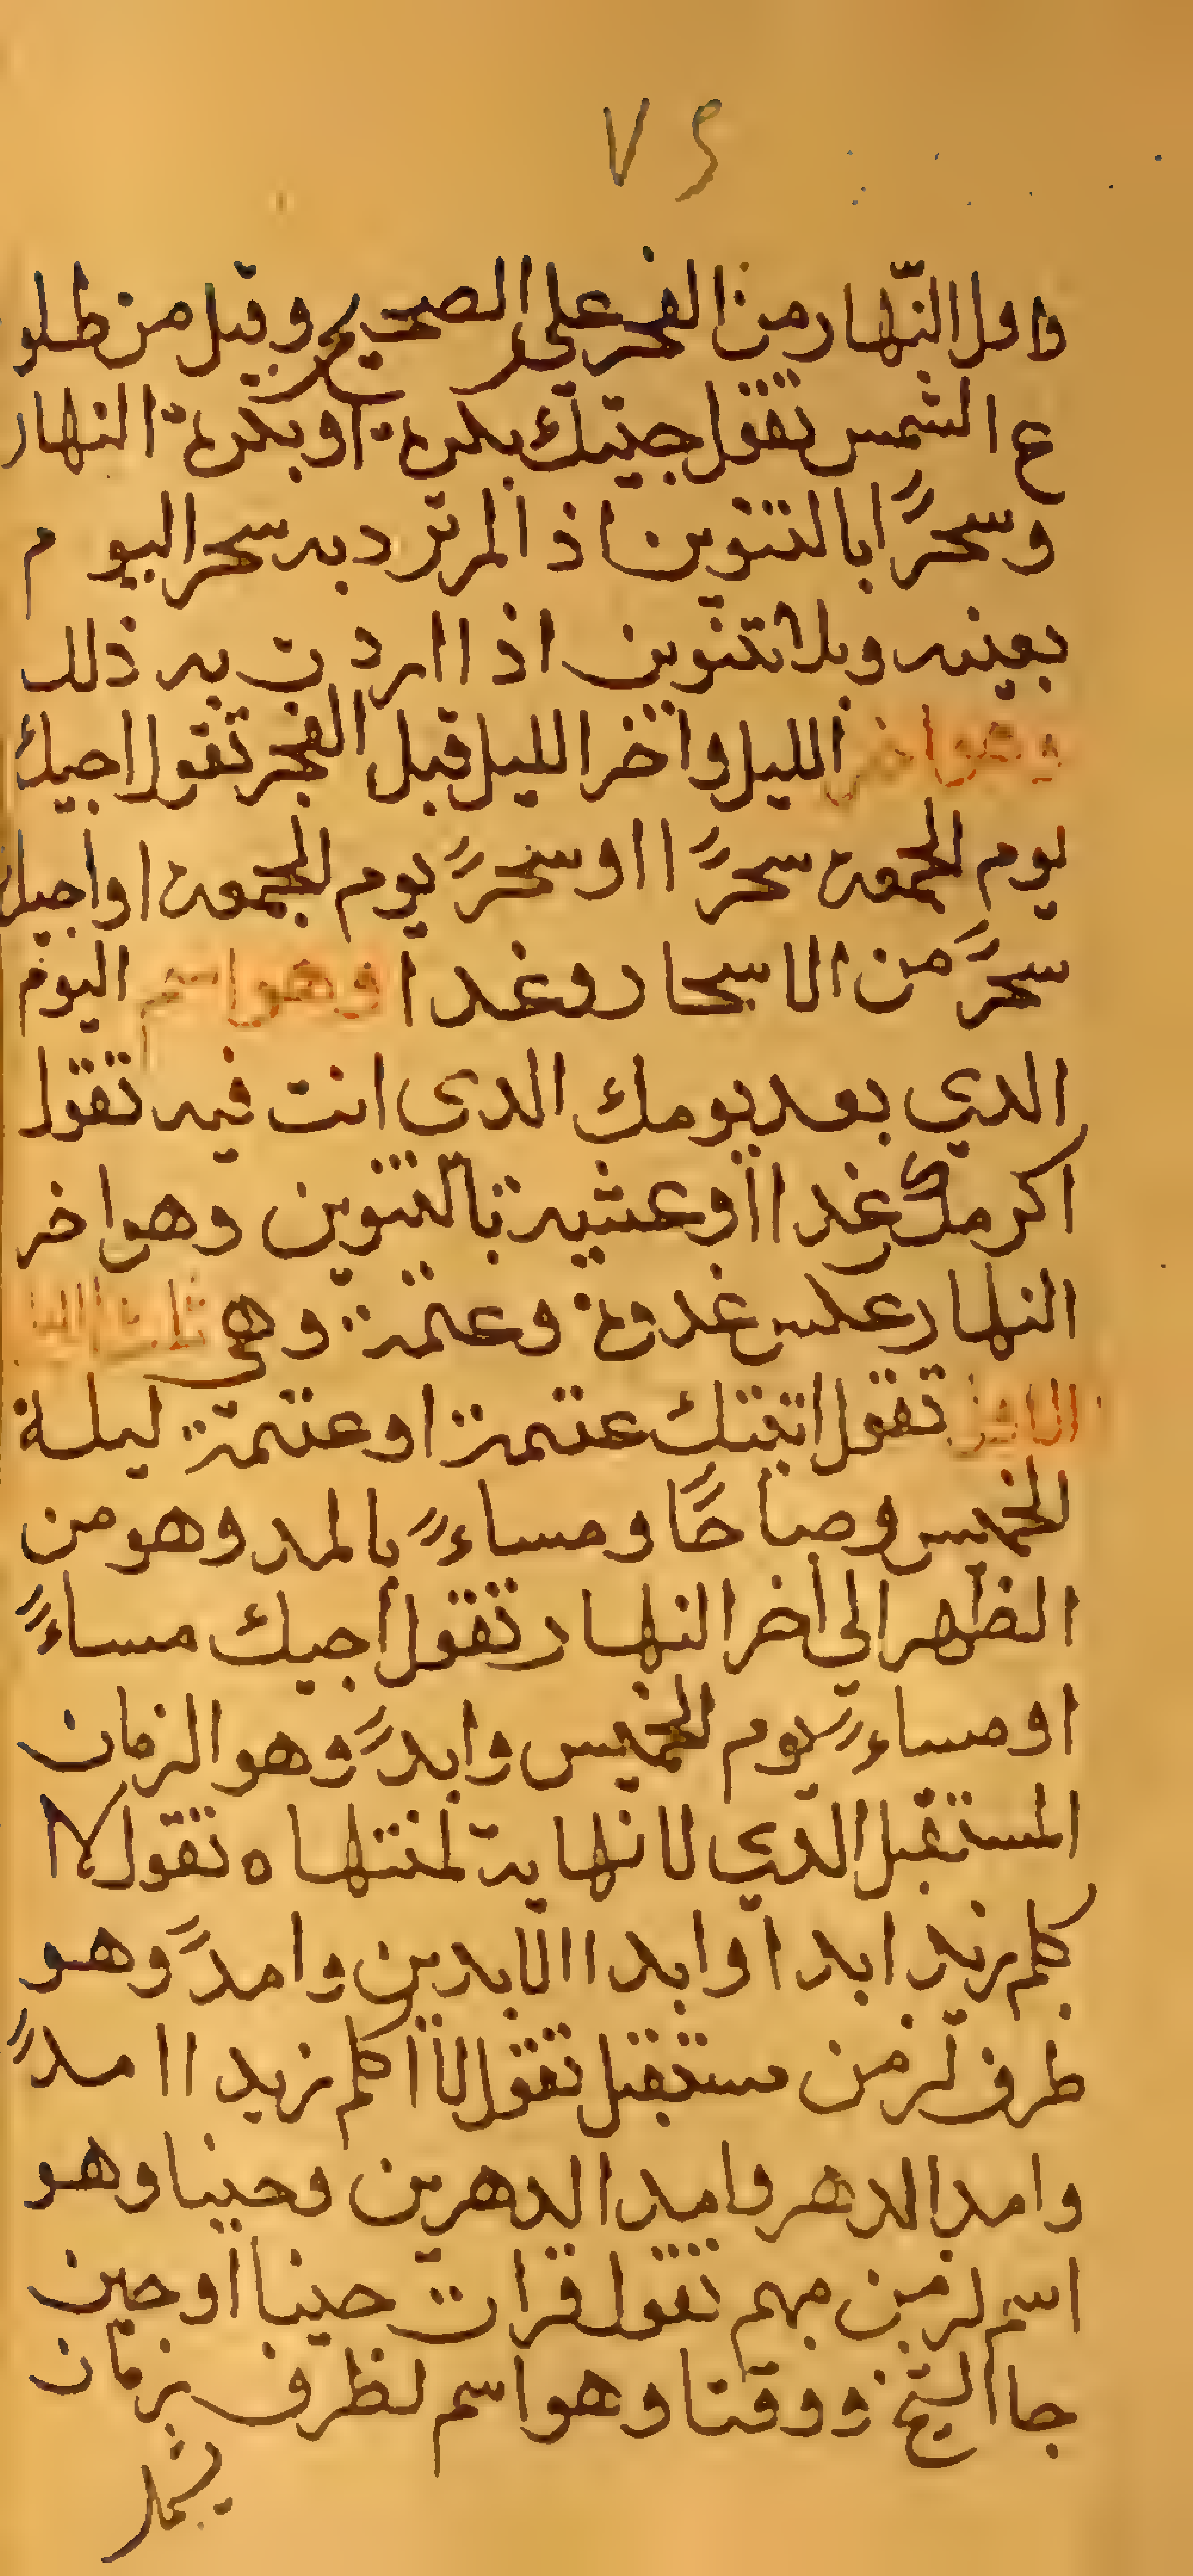 ٧٥
واول النّهار من الفجر علي الصحيح وقيل من طلو
ع الشمس تقول جيتك بكرة او بكرة النهار
وسحرًا بالتنوين اذ المر ترد به سحر اليو م
بعينه وبلا تنوين اذا اردت به ذلك
وهو اخر الليل واخر الليل قبل الفجر تقول اجيك
يوم الجمعة سحرًا او سحرً يوم الجمعة او اجيك
سحرً من الاسحار وغدا وهو اسم اليوم
الدي بعد يومك الدى انت فيه تقول
اكرمك غدا او عشية بالتنوين وهو اخر
النهار عكس غدوة وعتمة وهي ثلث الليل
الاول تقول اتيتك عتمة او عتمة ليلة
الخميس وصباحًا ومساءً بالمد وهو من
الظهر الي اخر النهار تقول اجيك مساءً
او مساءً يوم الخميس وابدً وهو الزمان
المستقبل الدي لا نهاية لمنتهاه تقول لا ا
كلم زيد ابدا وابدا الابدين وامدً وهو
ظرف لزمن مستقبل تقول لا اكلم زيد ا امدً
وامد الدهر وامد الدهرين وحينا وهو
اسم لزمن مبهم تقول قرات حينا او حين
جا الشيخ ووقتا وهو اسم لظرف بزمان